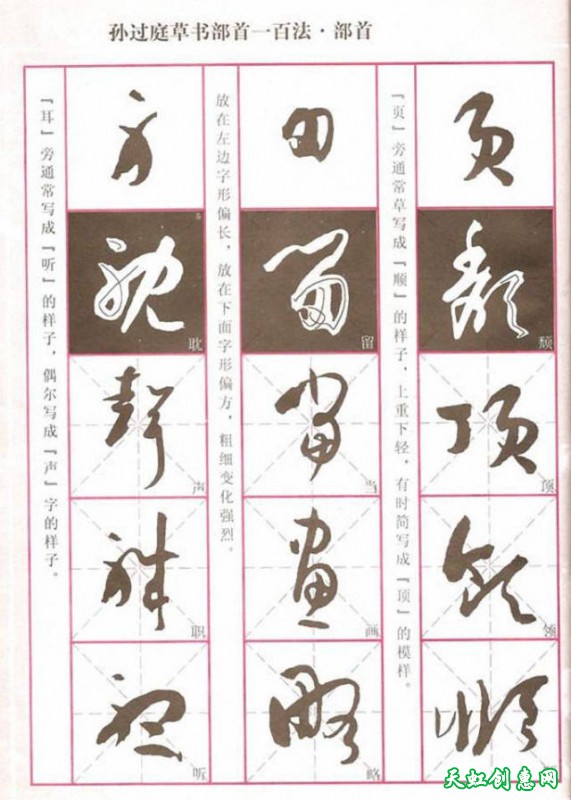 孙过庭草书部首一百法·部首
『页』旁通常草写成『顺』的样子，上重下轻，有时简写成『顶』的模样。
页
颓
项
领
放在左边字形偏长，放在下面字形偏方，粗细变化强烈。
田
留
当
画
略
『耳』旁通常写成『听』的样子，偶尔写成『声』字的样子。
耳
耽
声
职
听
天虹创意网